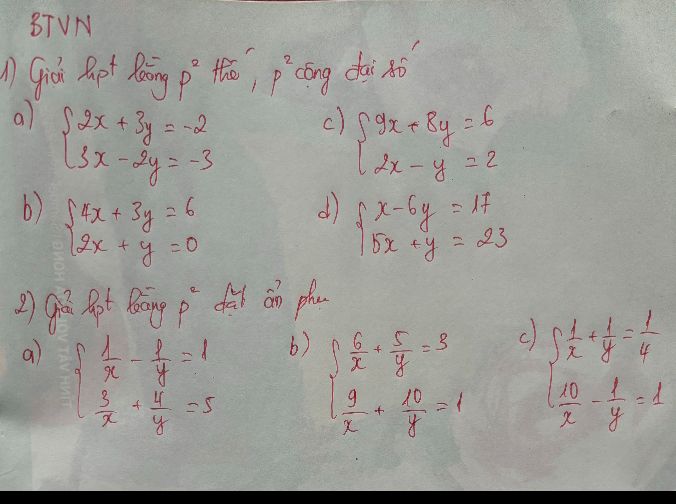 BTVN
1) Giải hpt bằng p² thế, p² cộng đại số
a) { 2x + 3y = -2
3x - 2y = -3
c) { 9x + 8y = 6
2x - y = 2
b) { 4x + 3y = 6
2x + y = 0
d) { x - 6y = 17
5x + y = 23
2) Giải hpt bằng p² đặt ẩn phụ
a) { 1/x - 1/y = 1
3/x + 4/y = 5
b) { 6/x + 5/y = 3
9/x + 10/y = 1
c) { 1/x + 1/y = 1/4
10/x - 1/y = 1